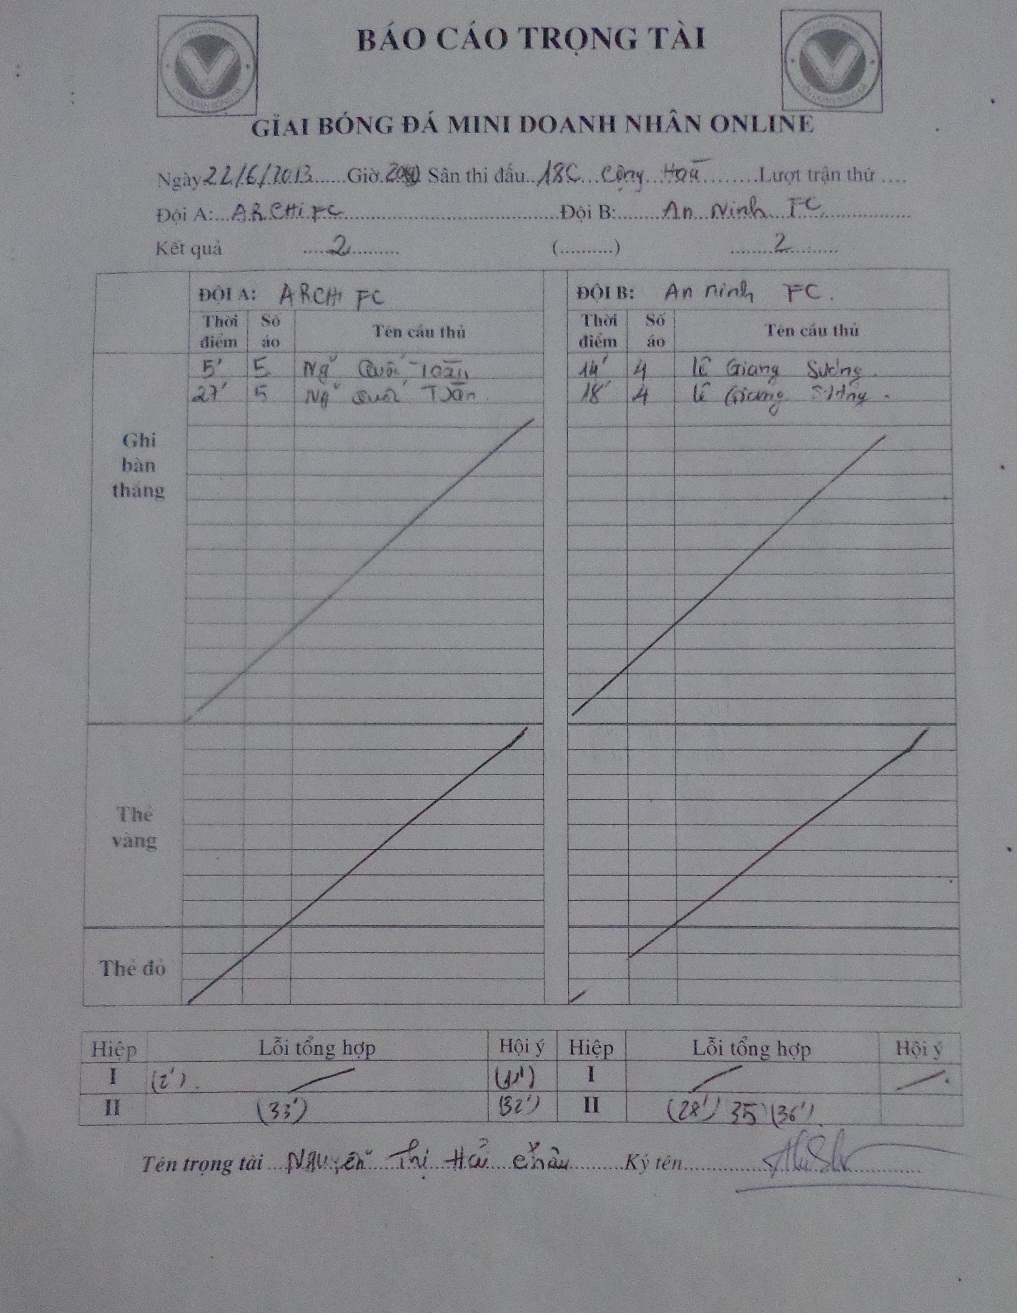 BÁO CÁO TRỌNG TÀI
GIẢI BÓNG ĐÁ MINI DOANH NHÂN ONLINE
Ngày 22/6/2013 Giờ Sân thi đấu 18C Cộng Hoà Lượt trận thứ
Đội A: ARCHI FC Đội B: An Ninh FC
Kết quả 2 (..........) 2
ĐỘI A: ARCHI FC ĐỘI B: An ninh FC.
Thời điểm Số áo Tên cầu thủ Thời điểm Số áo Tên cầu thủ
5' 5 Quốc 14' 4 Lê Giang Sương.
27' 5 Quốc Tuấn. 18' 4 Lê Giang Sương.
Ghi bàn thắng
Thẻ vàng
Thẻ đỏ
Hiệp Lỗi tổng hợp Hội ý Hiệp Lỗi tổng hợp Hội ý
I (2'). I
II (33') (32') II (28') 35' (36')
Tên trọng tài Nguyễn Thị Hải Châu Ký tên